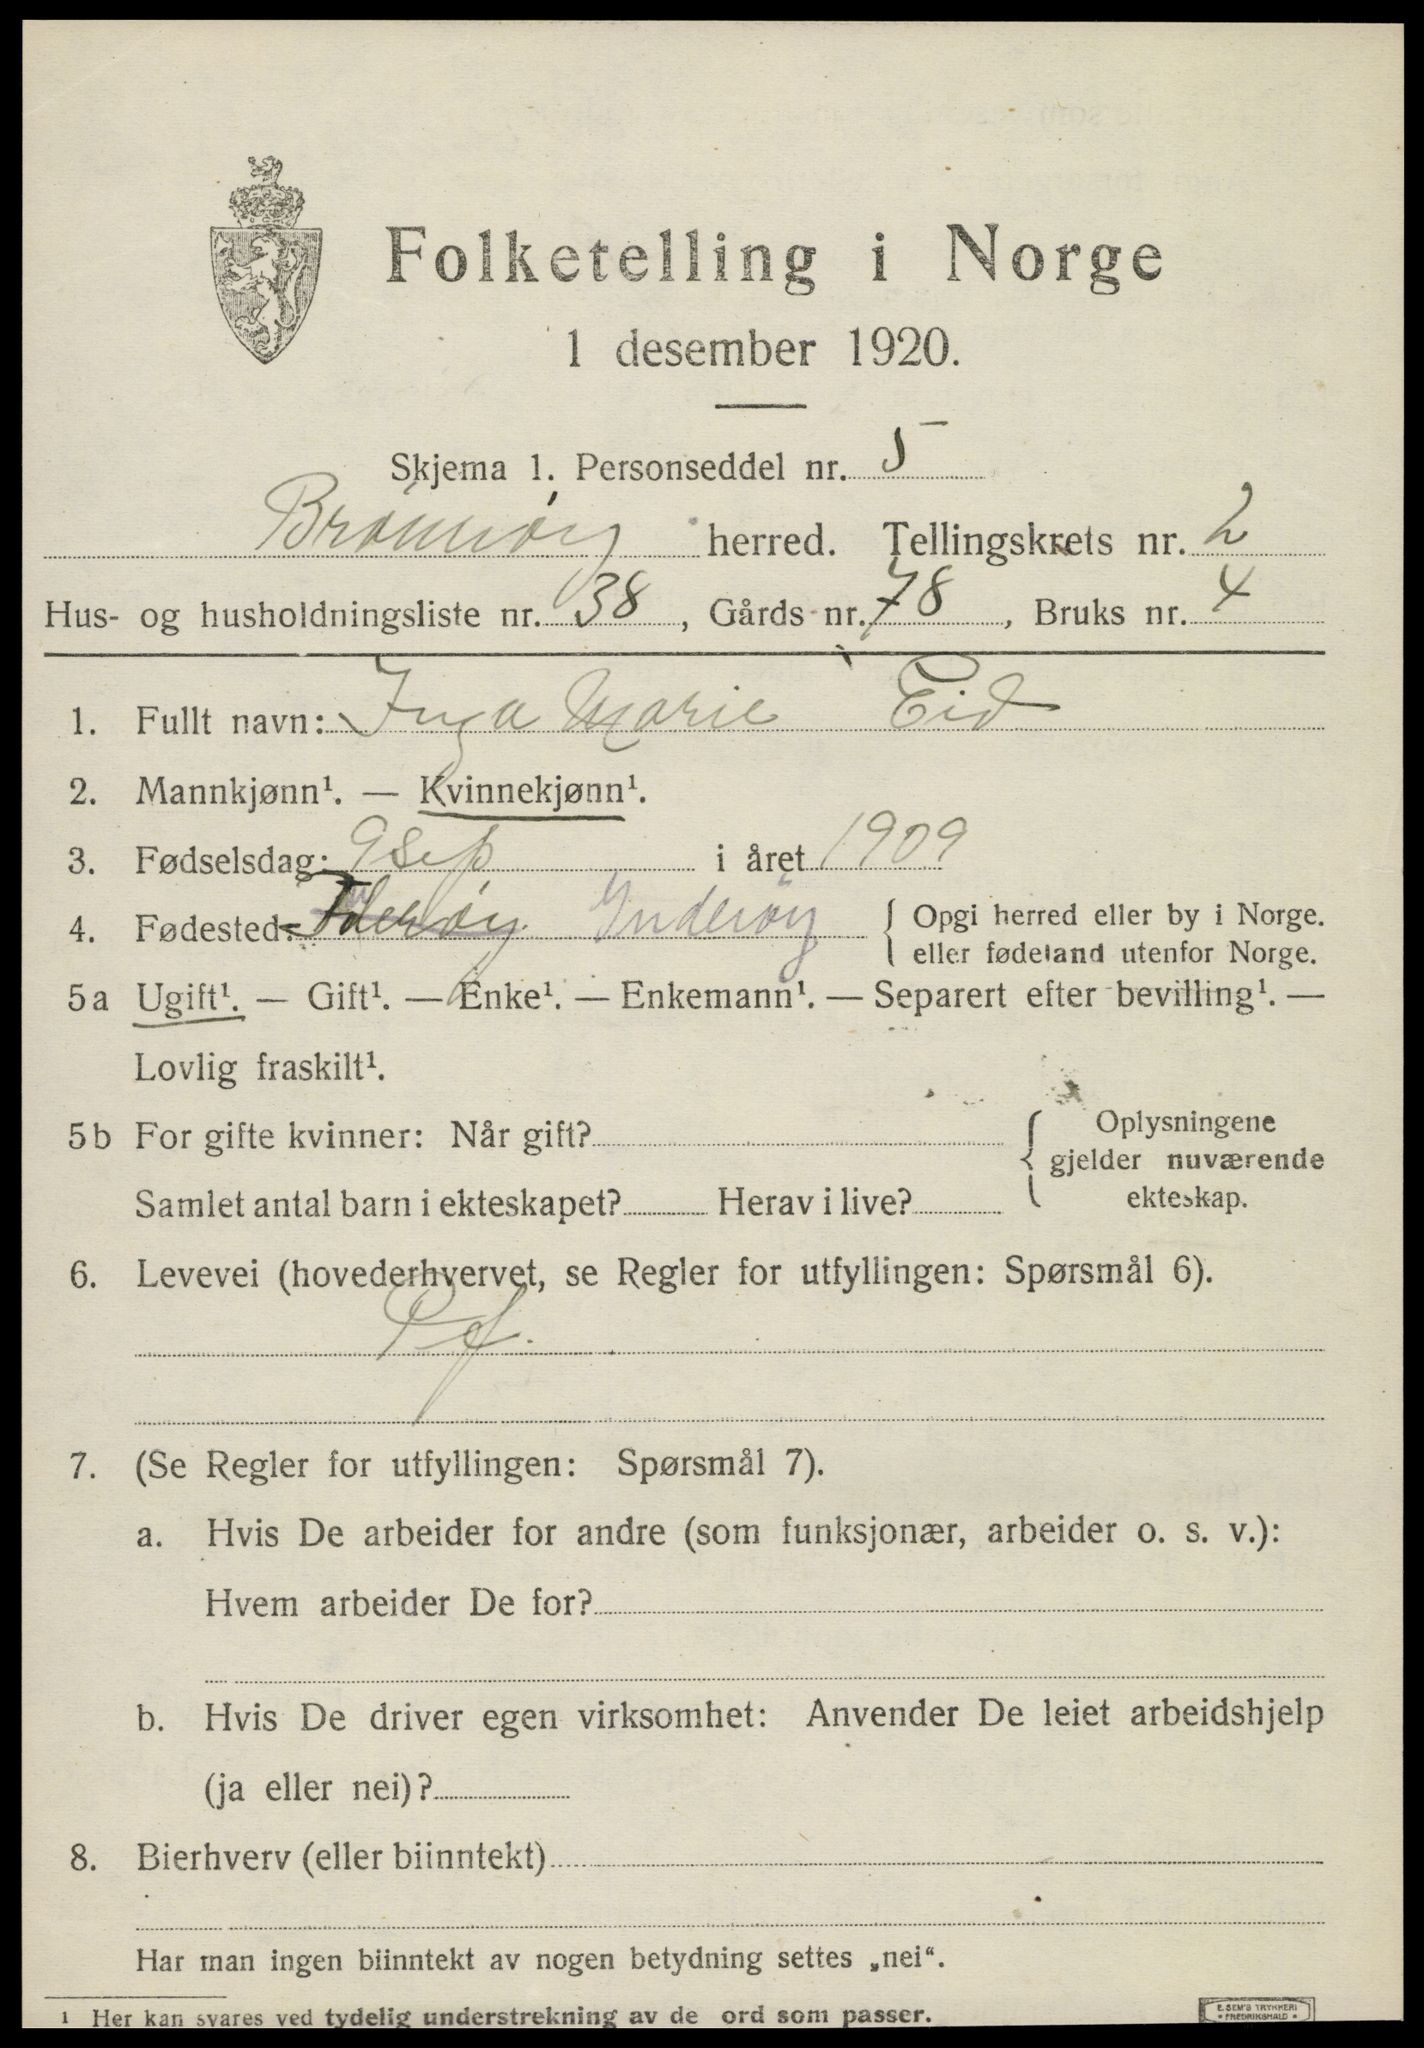 Folketelling i Norge
1 desember 1920.
Skjema 1. Personseddel nr. 5
Brönnöy herred. Tellingskrets nr. 2
Hus- og husholdningsliste nr. 38, Gårds nr. 78, Bruks nr. 4
1. Fullt navn: Inga Marie Eid
2. Mannkjønn¹. — Kvinnekjønn¹.
3. Fødselsdag: 9 Sep i året 1909
4. Fødested: Inderöy { Opgi herred eller by i Norge.
eller fødeland utenfor Norge.
5a Ugift¹. — Gift¹. — Enke¹. — Enkemann¹. — Separert efter bevilling¹. —
Lovlig fraskilt¹.
5b For gifte kvinner: Når gift? { Oplysningene
gjelder nuværende
Samlet antal barn i ekteskapet? Herav i live? ekteskap.
6. Levevei (hovederhvervet, se Regler for utfyllingen: Spørsmål 6).
7. (Se Regler for utfyllingen: Spørsmål 7).
a. Hvis De arbeider for andre (som funksjonær, arbeider o. s. v.):
Hvem arbeider De for?
b. Hvis De driver egen virksomhet: Anvender De leiet arbeidshjelp
(ja eller nei)?
8. Bierhverv (eller biinntekt)
Har man ingen biinntekt av nogen betydning settes „nei“.
1 Her kan svares ved tydelig understrekning av de ord som passer.
E. SEM'S TRYKKERI
• FREDRIKSHALD •